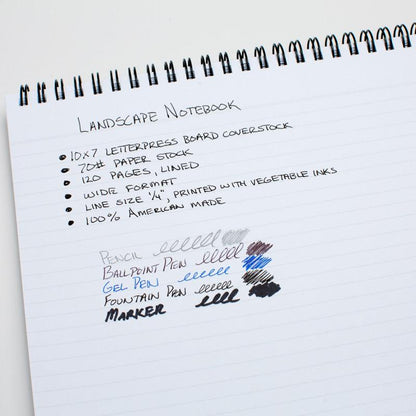 Landscape Notebook
• 10x7 Letterpress Board Coverstock
• 70# Paper Stock
• 120 Pages, Lined
• Wide Format
• Line Size 1/4", Printed with Vegetable Inks
• 100% American Made
Pencil
Ballpoint Pen
Gel Pen
Fountain Pen
Marker